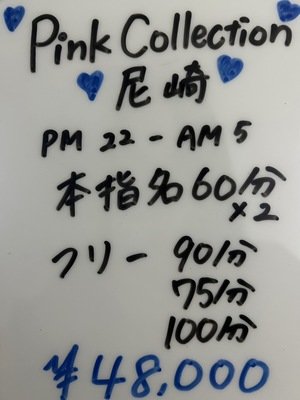 Pink Collection
尼崎
PM 22 - AM 5
本指名60分
×2
フリー 90分
75分
100分
¥48,000